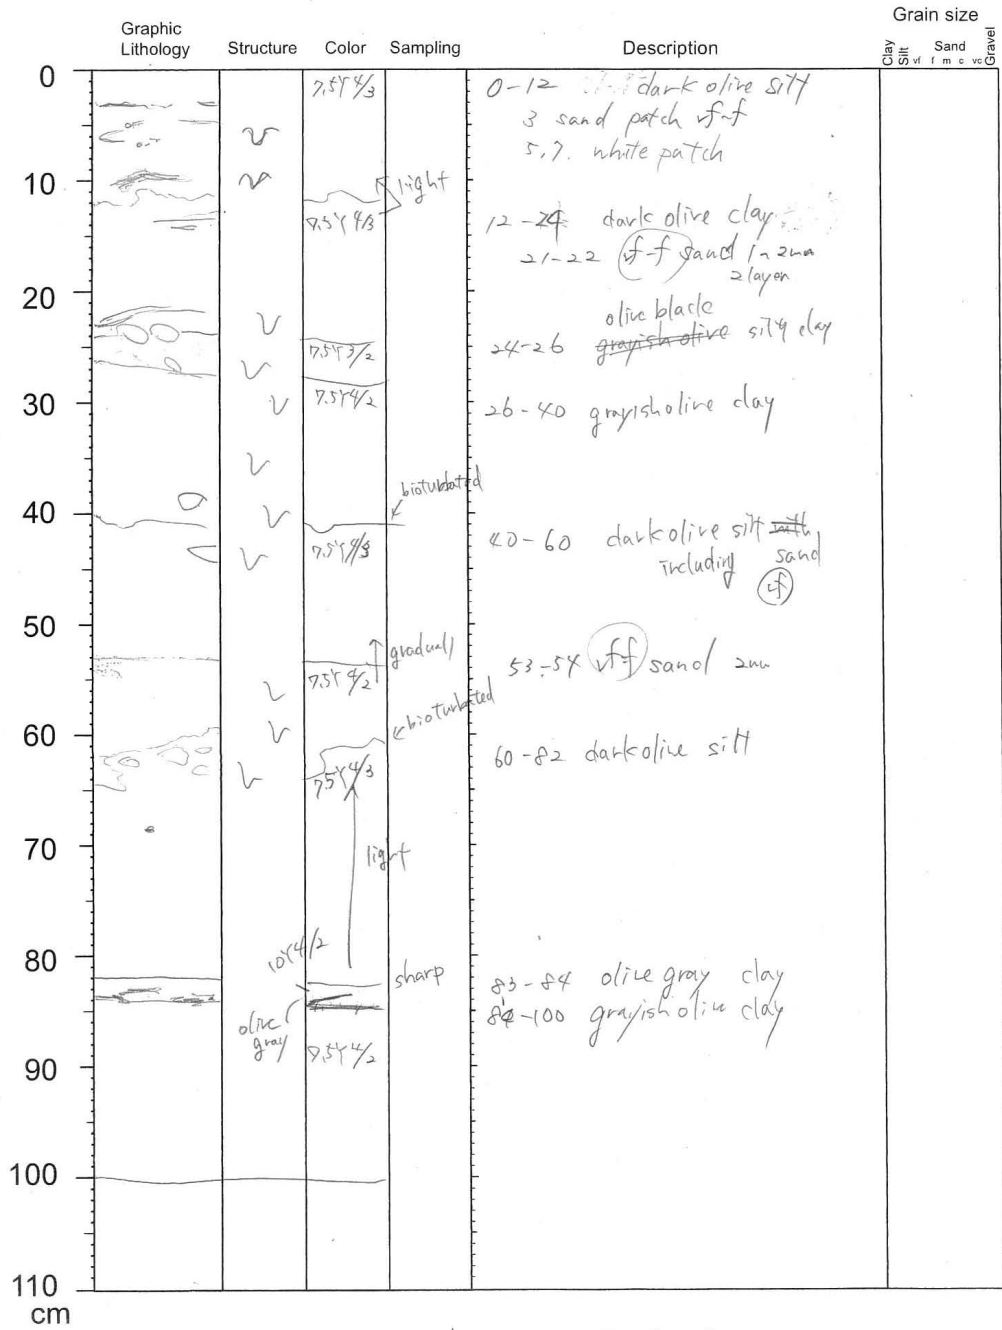 Graphic
Lithology
Structure
Color
Sampling
Description
Grain size
Clay
Silt
vf f m c vc
Sand
Gravel
0
10
20
30
40
50
60
70
80
90
100
110
cm
7.5Y 4/3
light
7.5Y 4/3
7.5Y 3/2
7.5Y 4/2
bioturbated
7.5Y 4/3
gradual
7.5Y 4/2
bioturbated
7.5Y 4/3
light
10Y 4/2
sharp
olive
gray
7.5Y 4/2
0-12 dark olive silt
3 sand patch vf-f
5,7. white patch
12-24 dark olive clay
21-22 vf-f sand 1~2mm
2 layer
olive black
24-26 grayish olive silty clay
26-40 grayish olive clay
40-60 dark olive silt with
including sand
vf
53-54 vf-f sand 2mm
60-82 dark olive silt
83-84 olive gray clay
84-100 grayish olive clay